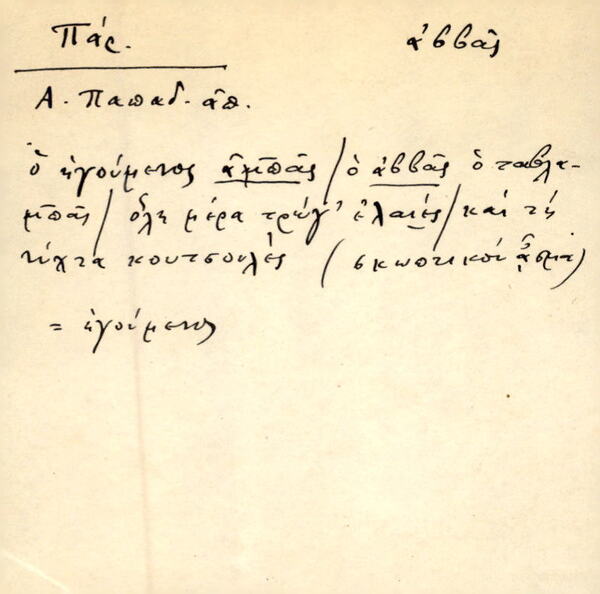 Πάρ. ἀββᾶς
Α. Παπαδ. ἀπ.
ὁ ἡγούμενος ἀμπᾶς / ὁ ἀββᾶς ὁ ταβλα-
μπᾶς / ὅλη μέρα τρώγ' ἐλαιές / καὶ τὴ
νύχτα κουτσουλές (σκωπτικὸν ᾆσμα)
= ἡγούμενος